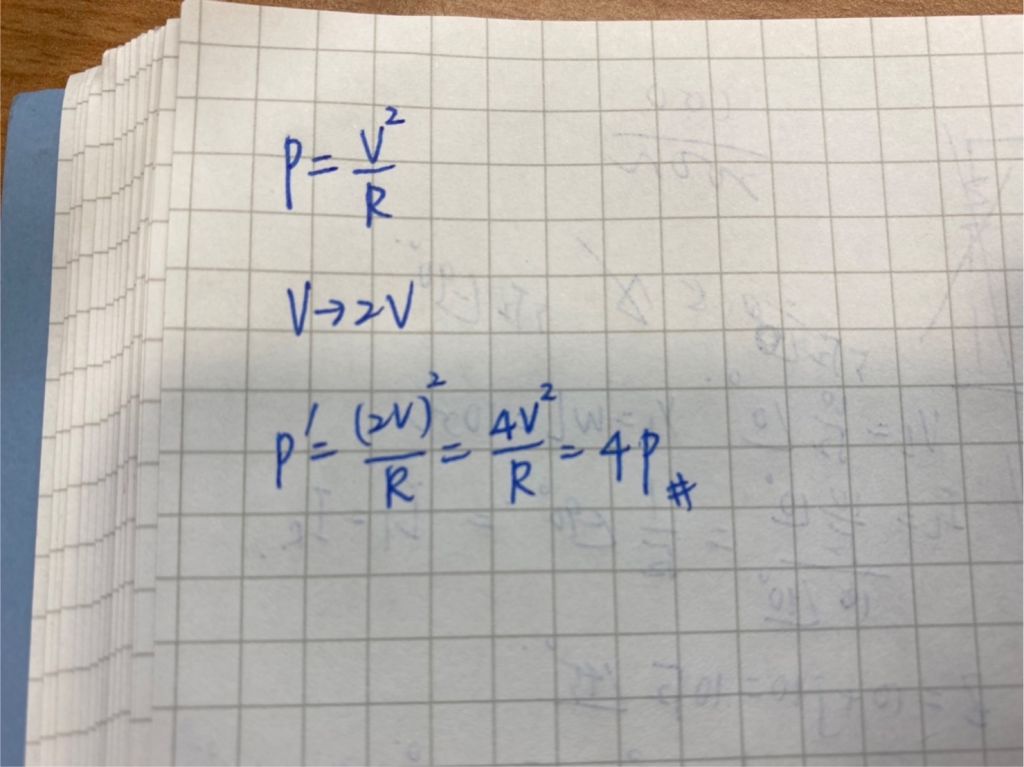 P = V²/R
V → 2V
P′ = (2V)²/R = 4V²/R = 4P #